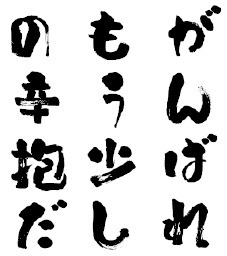 がんばれ
もう少し
の辛抱だ